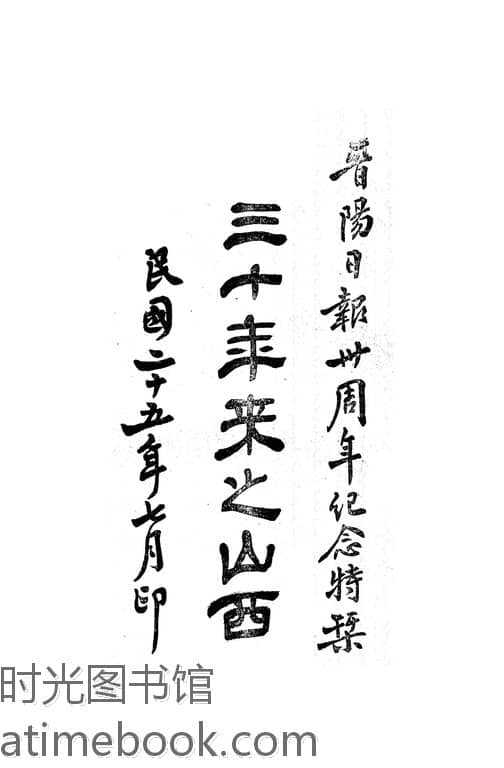 晋陽日報卅周年纪念特栞
三十年来之山西
民國二十五年七月印
时光图书馆
atimebook.com